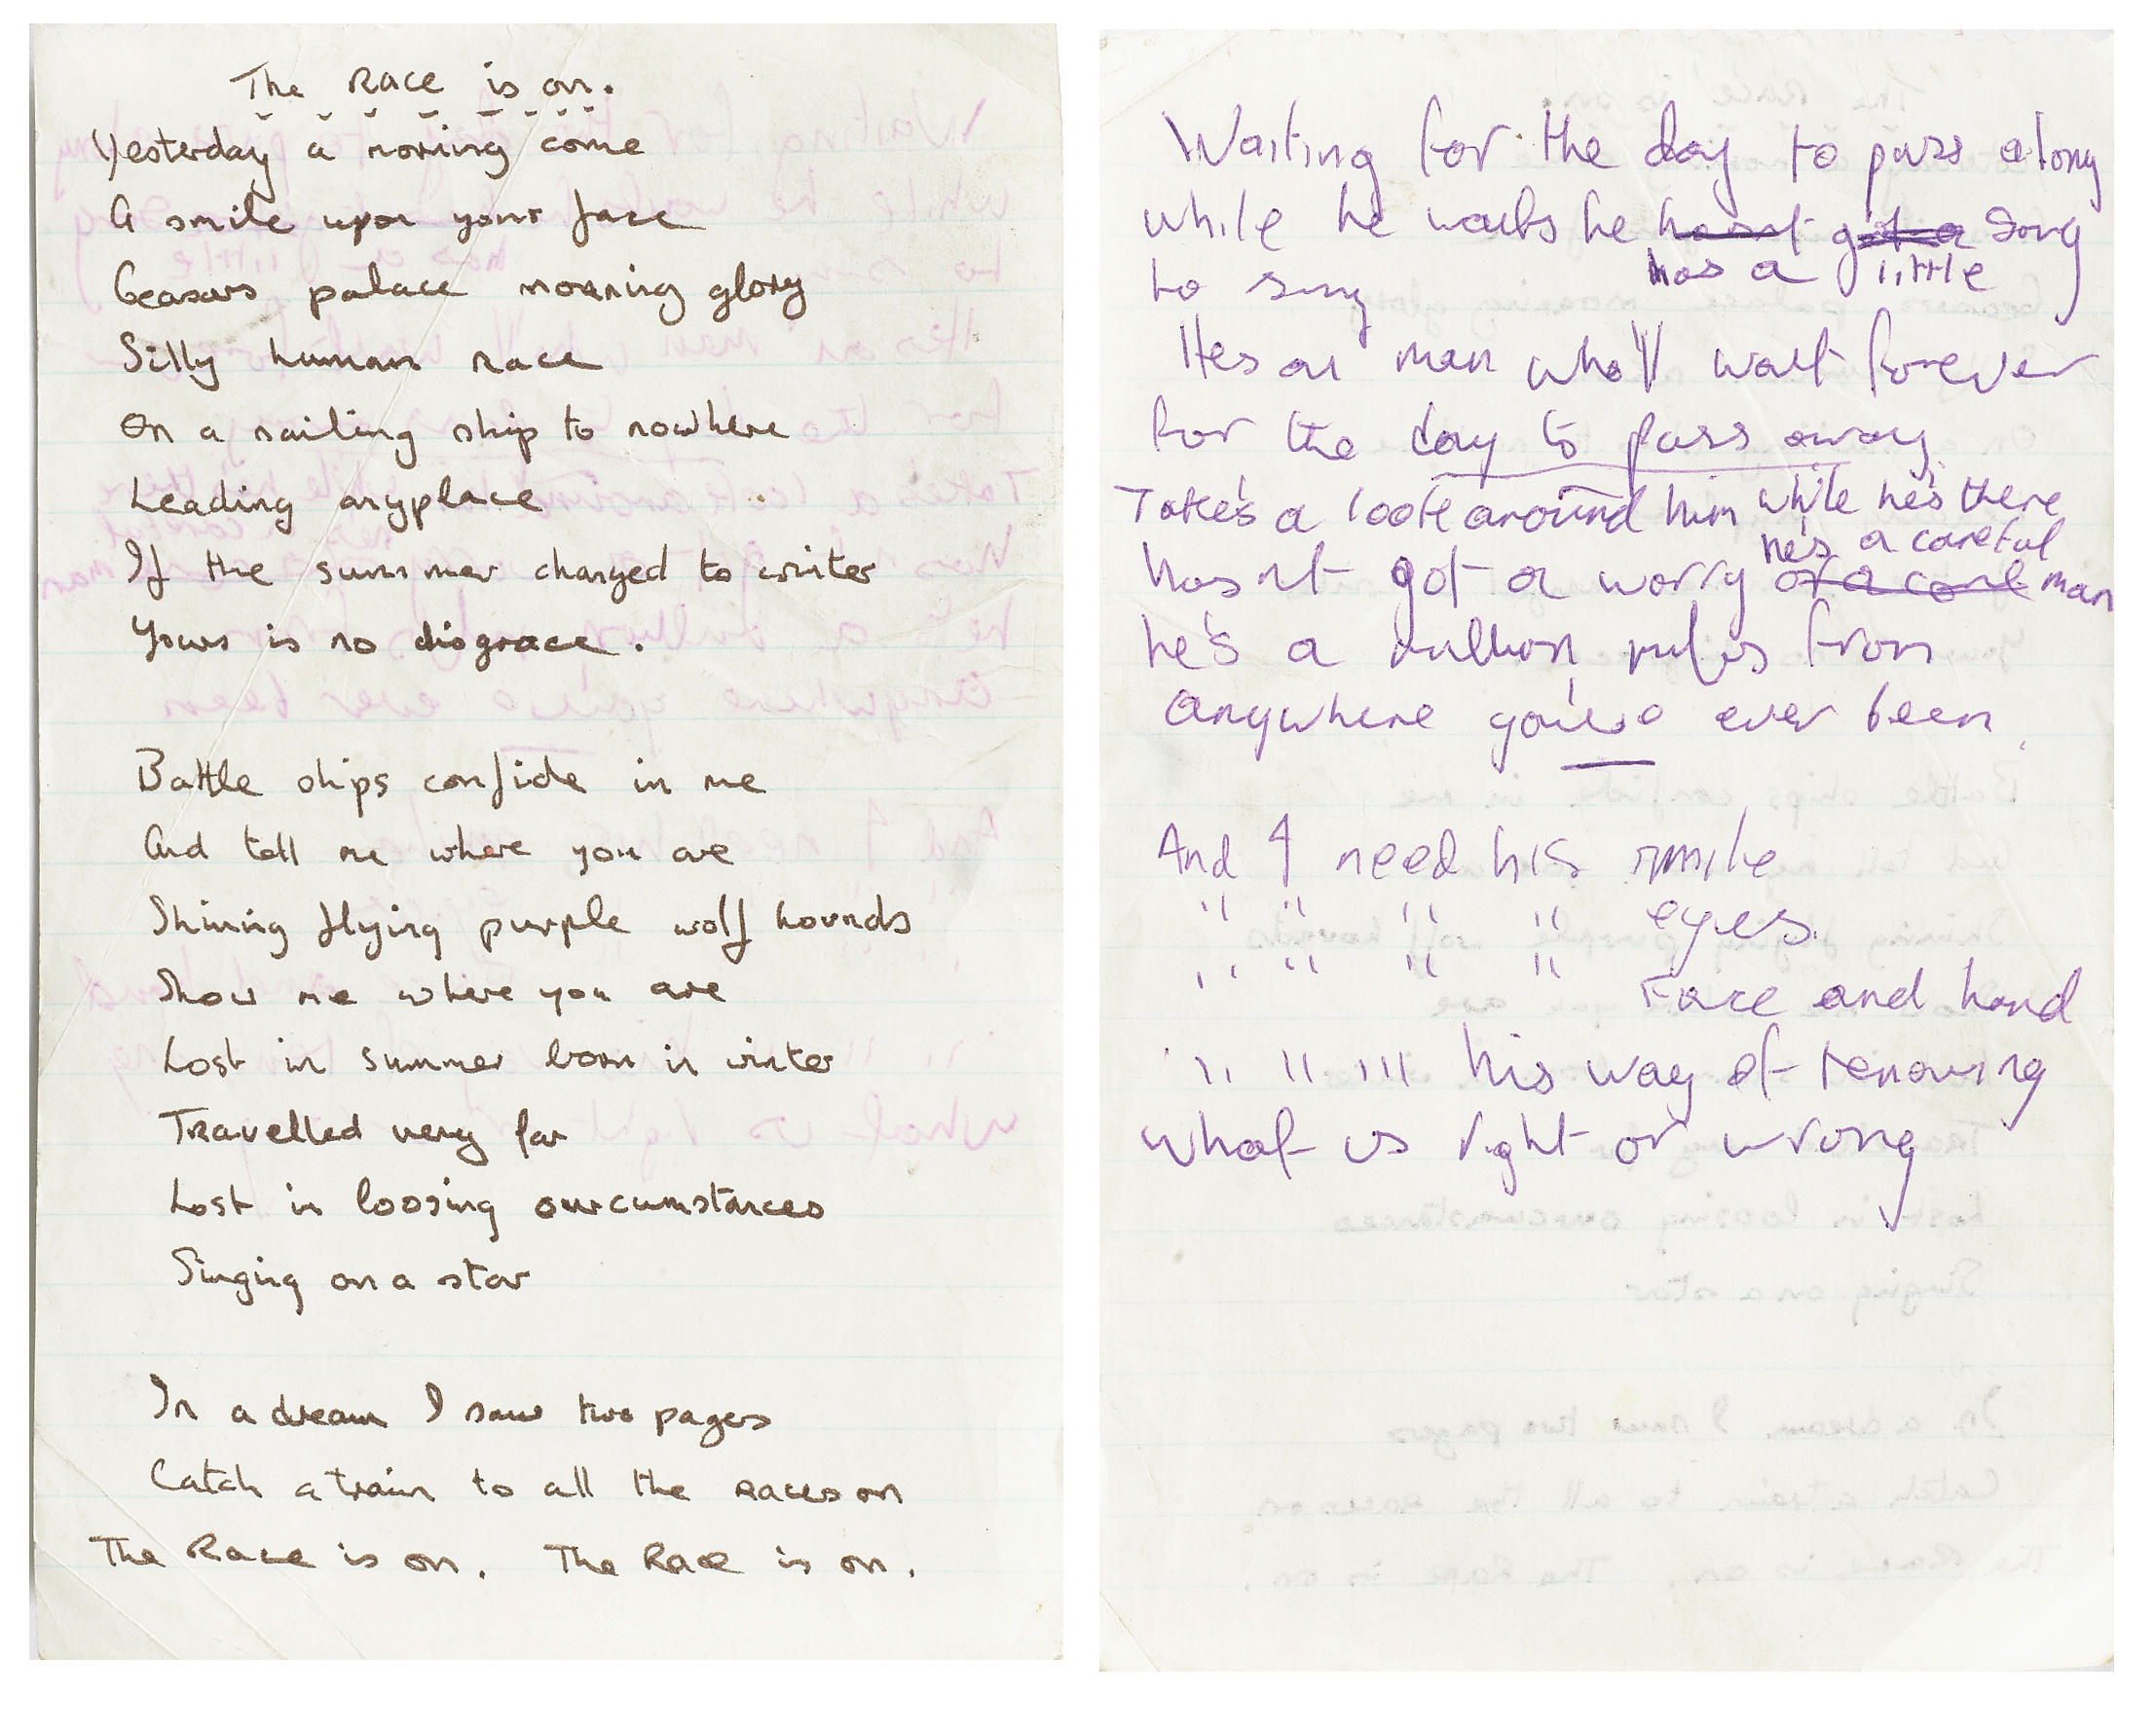 The Race is on.
Yesterday a moring come
A smile upon your face
Ceasars palace morning glory
Silly human race
On a sailing ship to nowhere
Leading anyplace
If the summer changed to winter
Yours is no disgrace.
Battle ships confide in me
And tell me where you are
Shining flying purple wolf hounds
Show me where you are
Lost in summer born in winter
Travelled very far
Lost in loosing ourcumstances
Singing on a star
In a dream I saw two pages
Catch a train to all the races on
The Race is on. The Race is on.
Waiting for the day to pass along
while he waits he hasnt got a song
has a little
to sing
Hes a man who'll wait forever
for the day to pass away
Take's a look around him while he's there
he's a careful
hasnt got a worry or a care man
he's a million miles from
anywhere you've ever been.
And I need his smile
" " " " eyes.
" " " " Face and hand
" " " his way of knowing
what is right or wrong